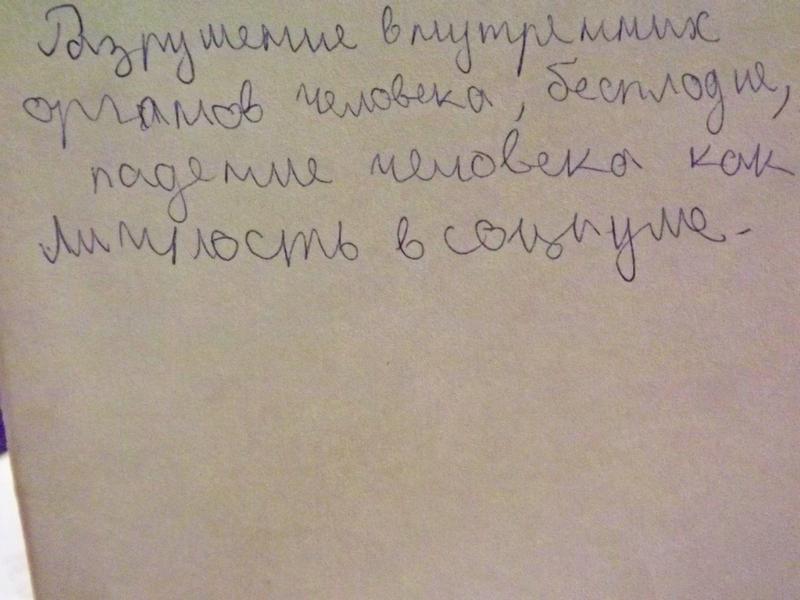 Разрушение внутренних
органов человека, бесплодие,
падение человека как
личность в социуме.